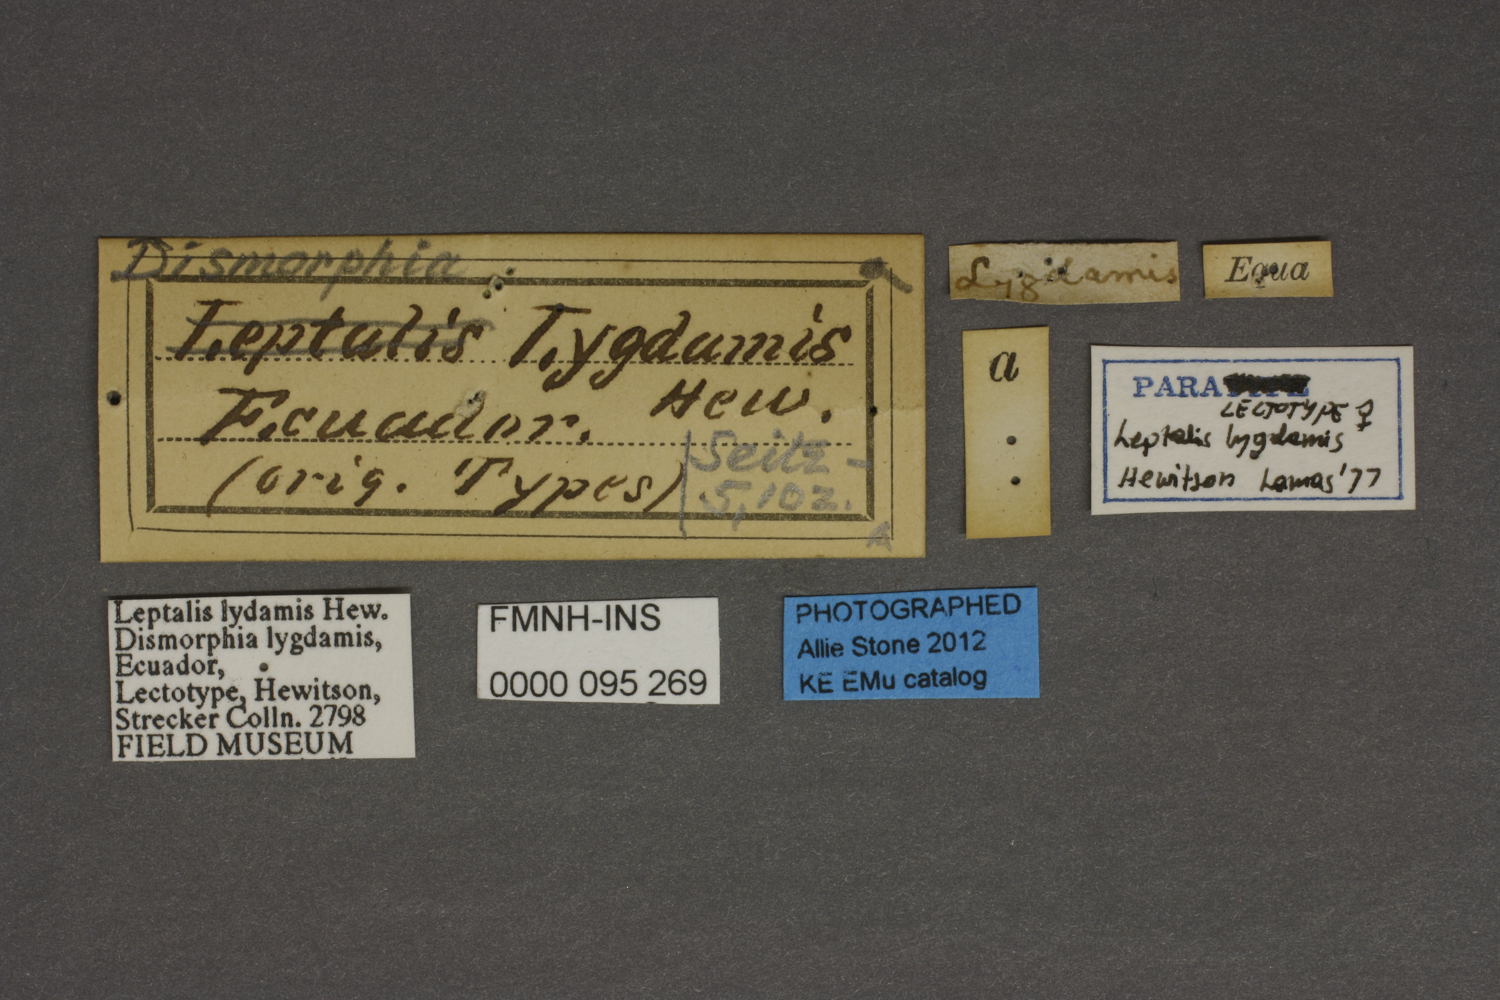 Dismorphia
Leptalis Lygdamis
Hew.
Ecuador.
(orig. Types)
Seitz -
5,102.
A
Lygdamis
Equa
a
PARA
LECTOTYPE ♀
Leptalis lygdamis
Hewitson Lamas '77
Leptalis lydamis Hew.
Dismorphia lygdamis,
Ecuador,
Lectotype, Hewitson,
Strecker Colln. 2798
FIELD MUSEUM
FMNH-INS
0000 095 269
PHOTOGRAPHED
Allie Stone 2012
KE EMu catalog